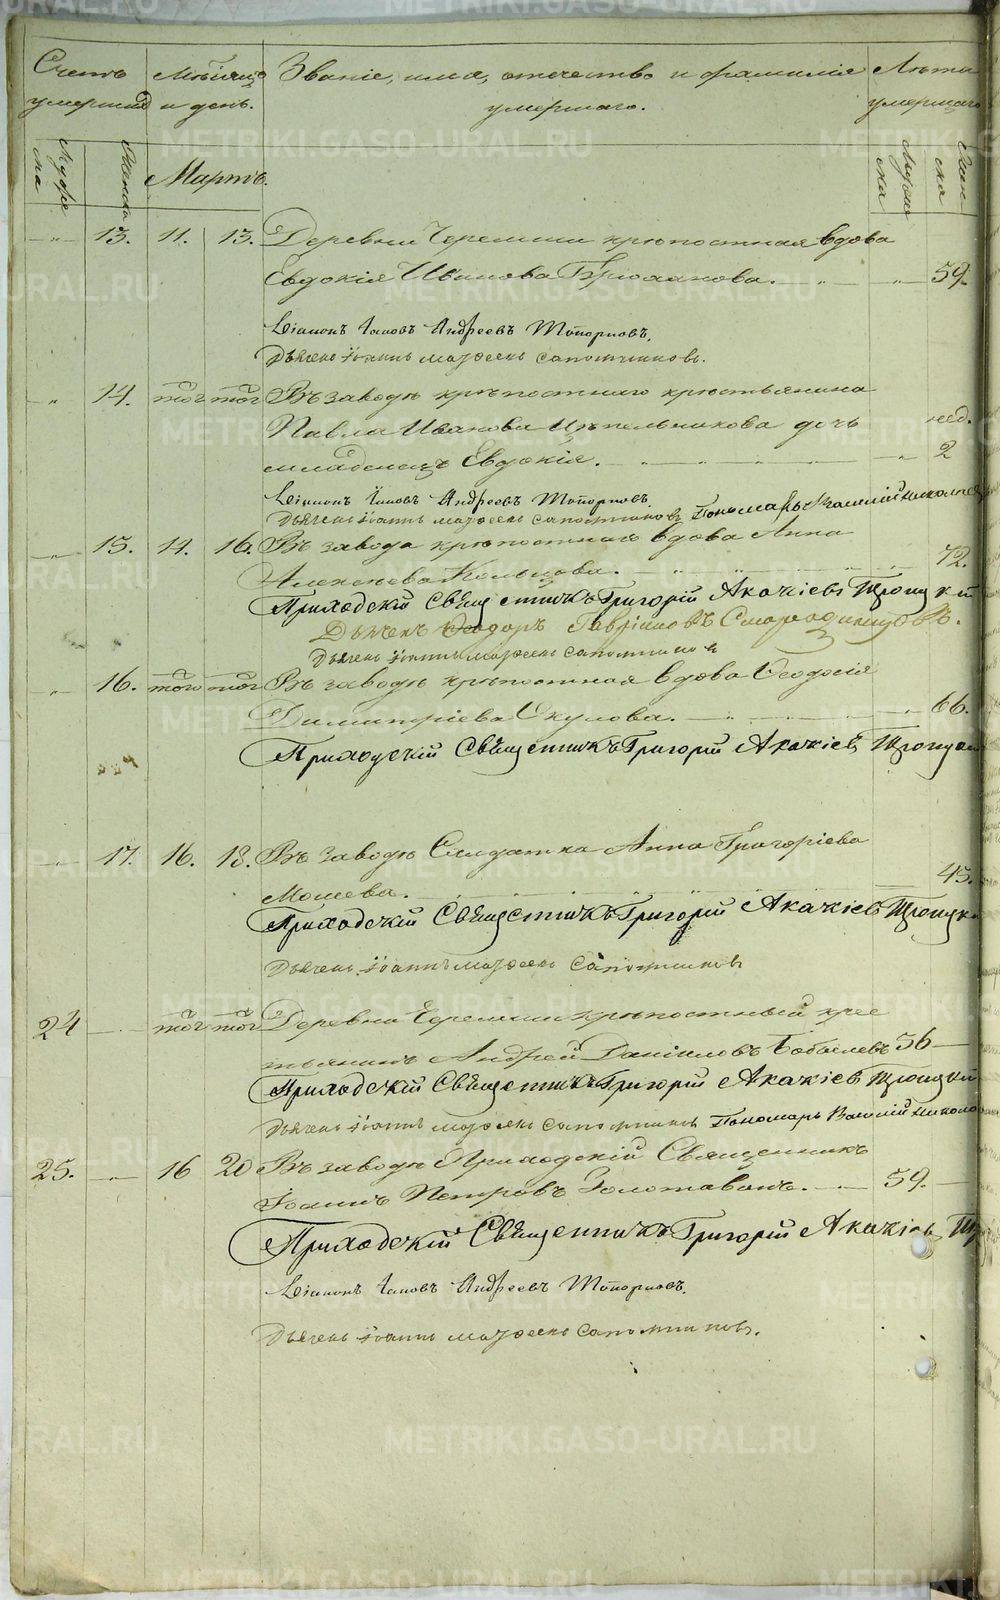 Счетъ Мѣсяцъ Званіе, имя, отечество и фамилія Лѣта
умершихъ и день. умершаго. умершаго
Муже ска Женска Мартъ. Муже ска Жен ска
13. 11. 13. Деревни Черемши крѣпостная вдова
Евдокія Иванова 59.
Діаконъ Андреевъ Топорковъ.
Дьячекъ Іоаннъ Матѳеевъ Сапожниковъ.
14. того того Въ заводѣ крѣпостнаго крестьянина
Павла Иванова дочь нед.
младенецъ Евдокія. 2
Діаконъ Андреевъ Топорковъ
Дьячекъ Іоаннъ Матѳеевъ Сапожниковъ Пономарь Василій
15. 14. 16. Въ завода крѣпостнаго вдова Анна
Алексѣева Кольцова. 72.
Приходскій Священникъ Григорій Акакіевъ Троицкій
Дьячекъ Ѳеодоръ Гавріиловъ Смородинцовъ.
Дьячекъ Іоаннъ Матѳеевъ Сапожниковъ
16. того того Въ заводѣ крѣпостная вдова Ѳеодосія
Димитріева Окулова. 66.
Приходскій Священникъ Григорій Акакіевъ Троицкій
17. 16. 18. Въ заводѣ Салдатка Анна Григоріева
Мошева. 45.
Приходскій Священникъ Григорій Акакіевъ Троицкі
Дьячекъ Іоаннъ Матѳеевъ Сапожниковъ
24 того того Деревни Черемши крѣпостный крес
тьянинъ Андрей Даніиловъ 56
Приходскій Священникъ Григорій Акакіевъ Троицкій
Дьячекъ Іоаннъ Матѳеевъ Сапожниковъ Пономарь Василій
25. 16 20 Въ заводѣ Приходскій Священникъ
Іоаннъ Петровъ Золотавинъ. 59.
Приходскій Священникъ Григорій Акакіевъ Тр
Діаконъ Андреевъ Топорковъ.
Дьячекъ Іоаннъ Матѳеевъ Сапожниковъ.
METRIKI.GASO-URAL.RU